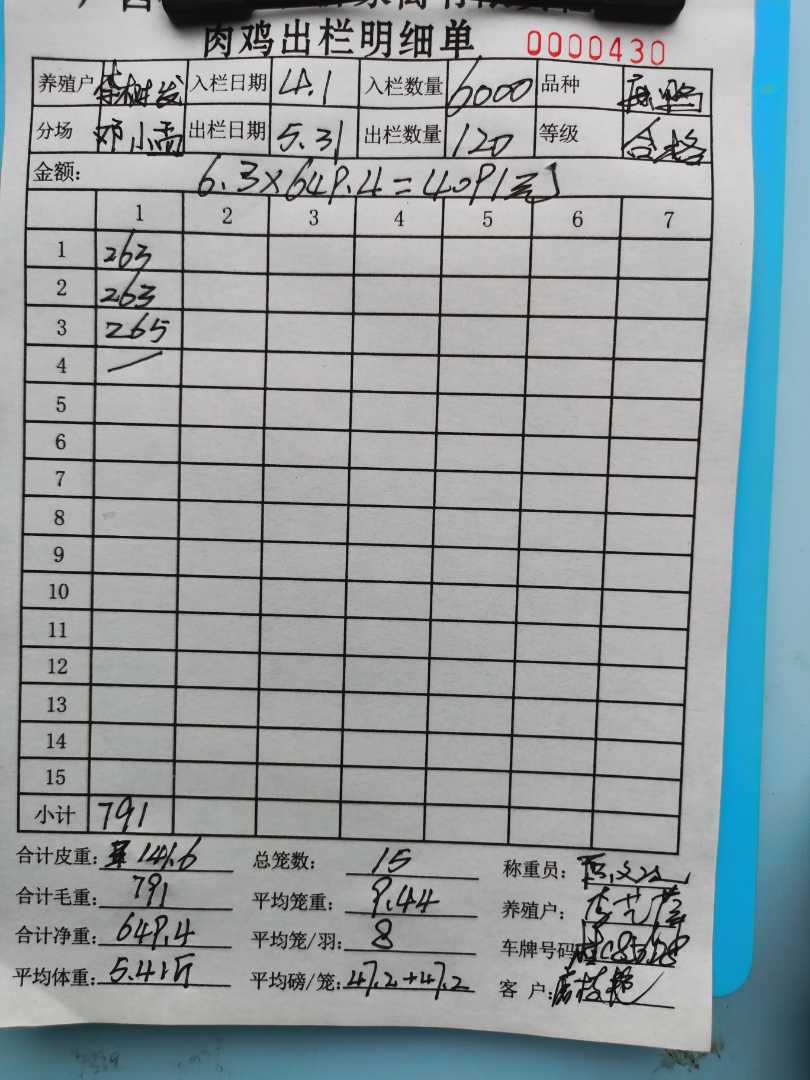 肉鸡出栏明细单 0000430
养殖户 李树发 入栏日期 4.1 入栏数量 6000 品种
分场 邓小孟 出栏日期 5.31 出栏数量 120 等级 合格
金额: 6.3×649.4=4091元
1 2 3 4 5 6 7
1 263
2 263
3 265
4 /
5
6
7
8
9
10
11
12
13
14
15
小计 791
合计皮重: 141.6 总笼数: 15 称重员:
合计毛重: 791 平均笼重: 9.44 养殖户:
合计净重: 649.4 平均笼/羽: 8 车牌号码
平均体重: 5.41斤 平均磅/笼: 47.2+47.2 客 户: